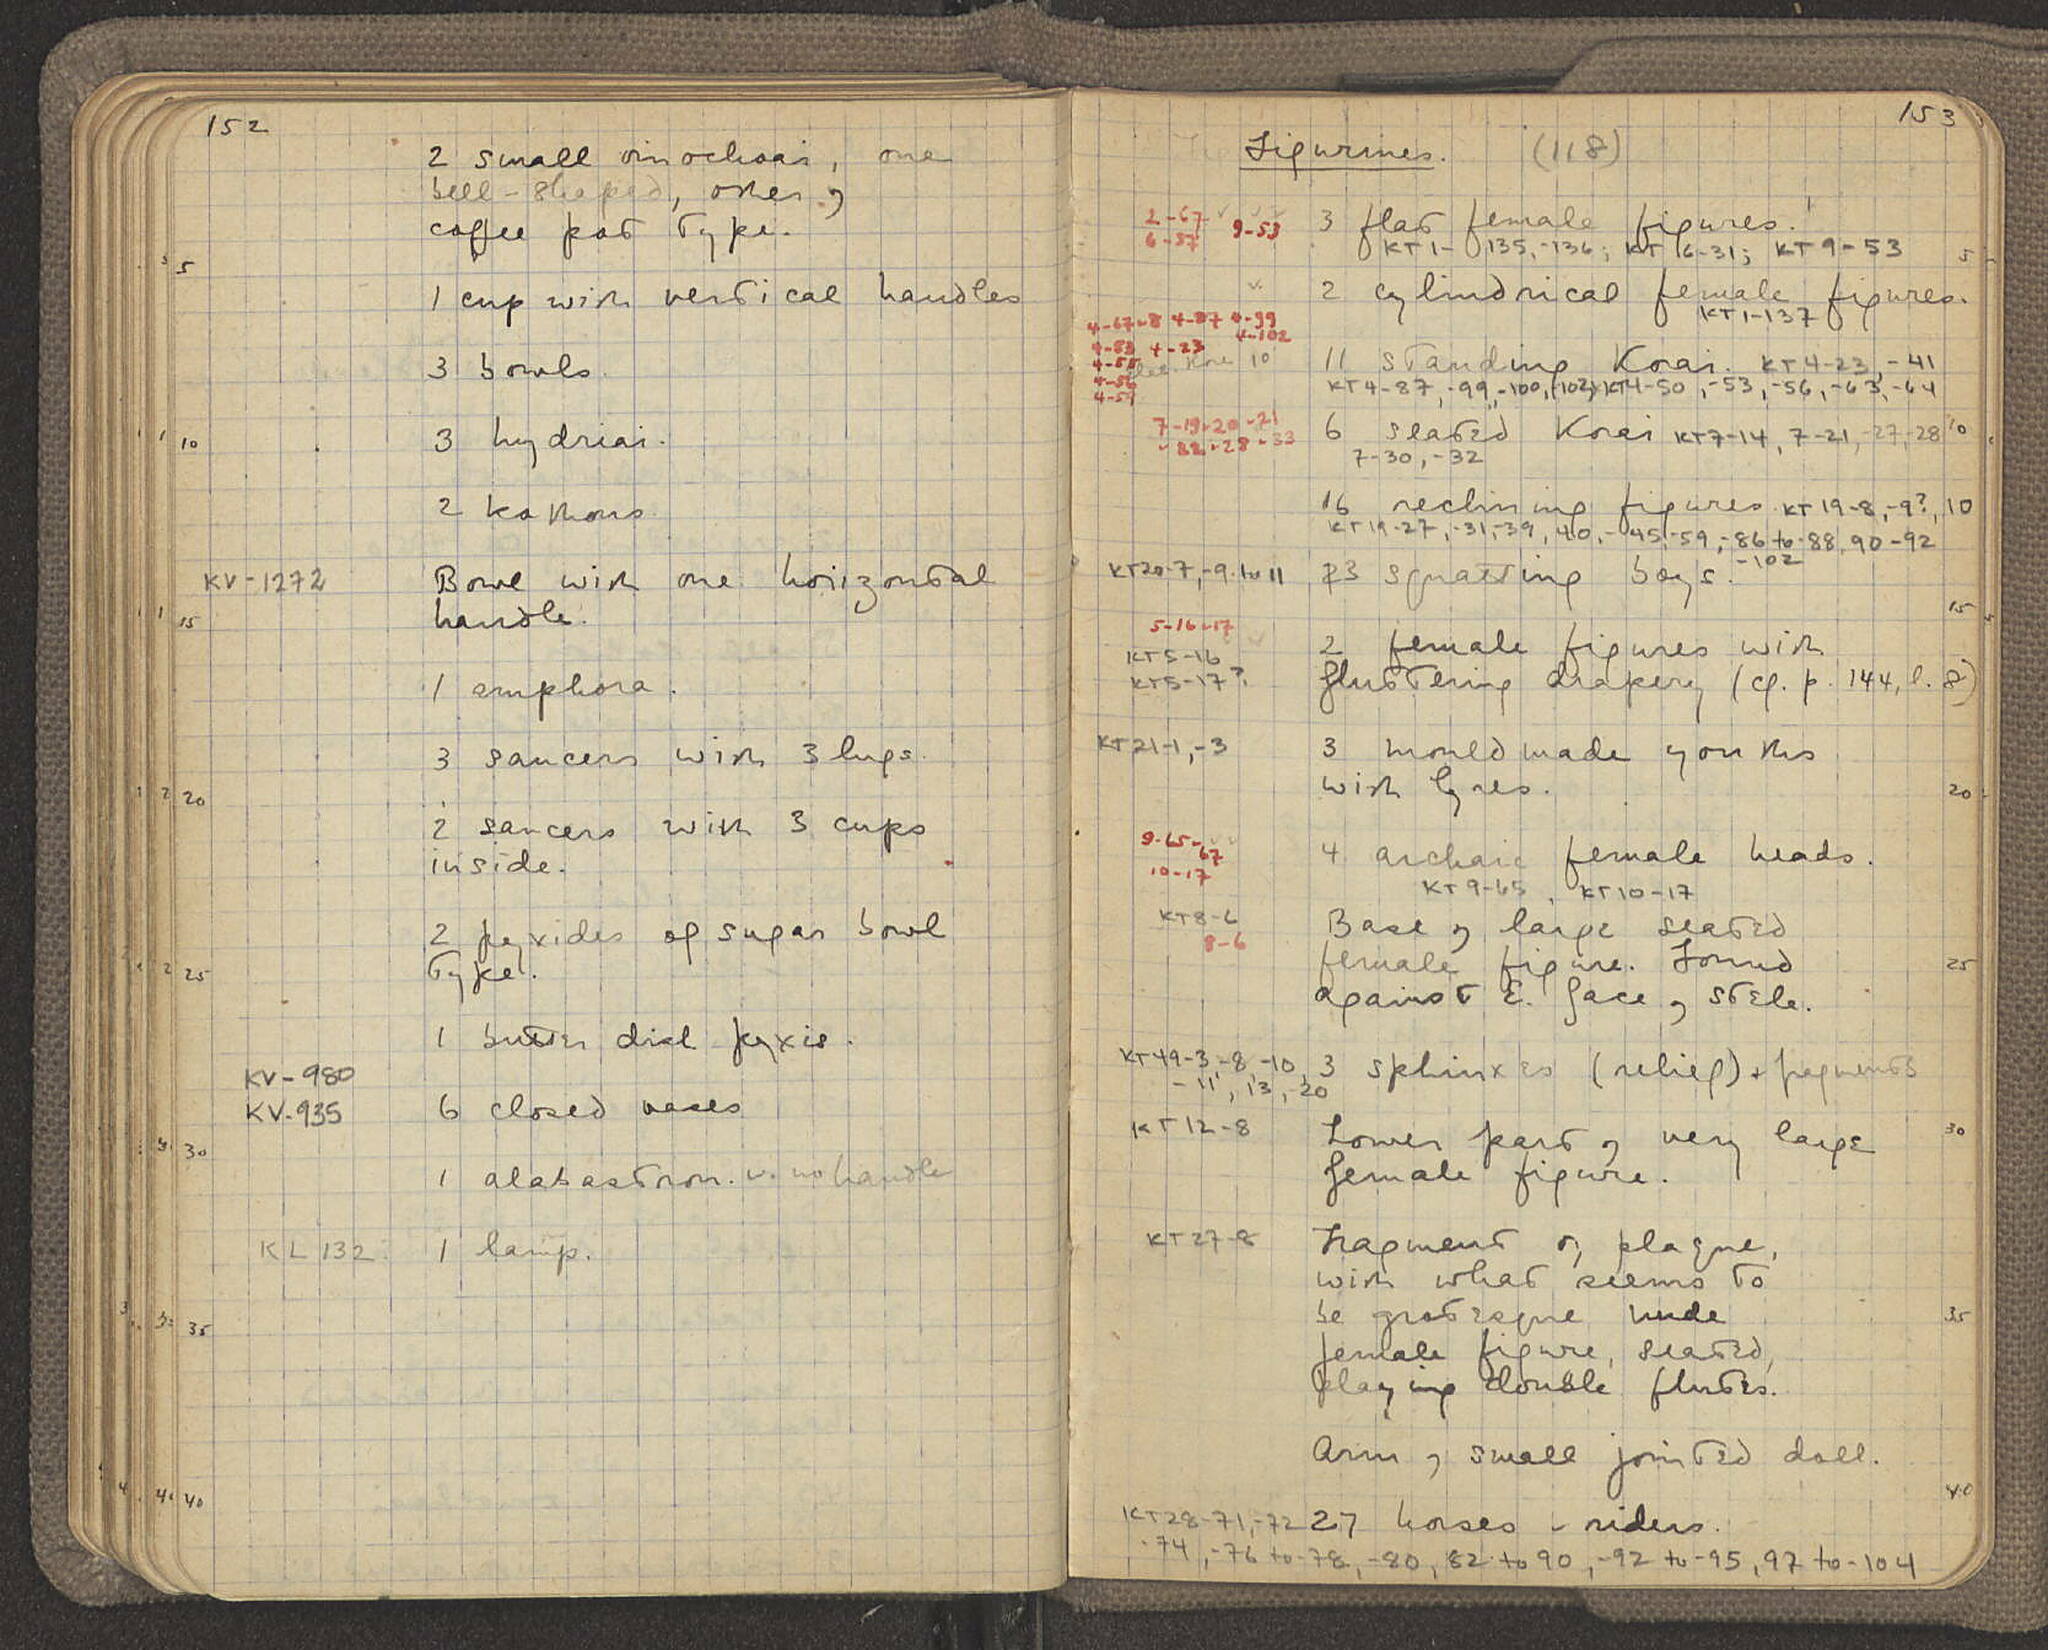 152
2 small oinochoai, one
bell-shaped, other of
coffee pot type.
5
1 cup with vertical handles
3 bowls.
10
3 hydriai.
2 kothons.
KV-1272 Bowl with one horizontal
15 handle.
1 amphora.
3 saucers with 3 lugs.
20
2 saucers with 3 cups
inside.
2 pyxides of sugar bowl
25 type.
1 butter dish pyxis.
KV-980
KV-935 6 closed vases
30
1 alabastron. v. no handle
KL 132 1 lamp.
35
40
153
Figurines. (118)
2-67 9-53 3 flat female figures.
6-37 KT1-135, -136; KT16-31; KT9-53
5
2 cylindrical female figures.
KT1-137
4-67 4-87 4-99
4-102
4-53 4-23
4-56
11 standing Korai. KT4-23, -41
Kore 10
KT4-87, -99, -100, (102) KT4-50, -53, -56, -63, -64
7-19-20-21 6 seated Korai KT7-14, 7-21, -27, -28 10
-22-28-33 7-30, -32
16 reclining figures. KT19-8, -9?, 10
KT19-27, -31, -39, 40, -45, -59, -86 to -88, 90-92
-102
KT20-7, -9 to 11 3 squatting boys.
15
5-16-17
KT5-16 2 female figures with
KT5-17? fluttering drapery (cf. p. 144, l. 8)
KT21-1, -3 3 mouldmade youths
with lyres. 20
9-65-67
10-17 4 archaic female heads.
KT9-65, KT10-17
KT8-6 Base of large seated
8-6 female figure. Found 25
against E. face of stele.
KT49-3, -8, -10, 3 sphinxes (relief) + fragments
-11, 13, -20
KT12-8 Lower part of very large 30
female figure.
KT27-8 Fragment of plaque,
with what seems to
be grotesque nude 35
female figure, seated,
playing double flutes.
Arm of small jointed doll.
40
KT28-71, -72 27 horses + riders.
-74, -76 to -78, -80, 82 to 90, -92 to -95, 97 to -104